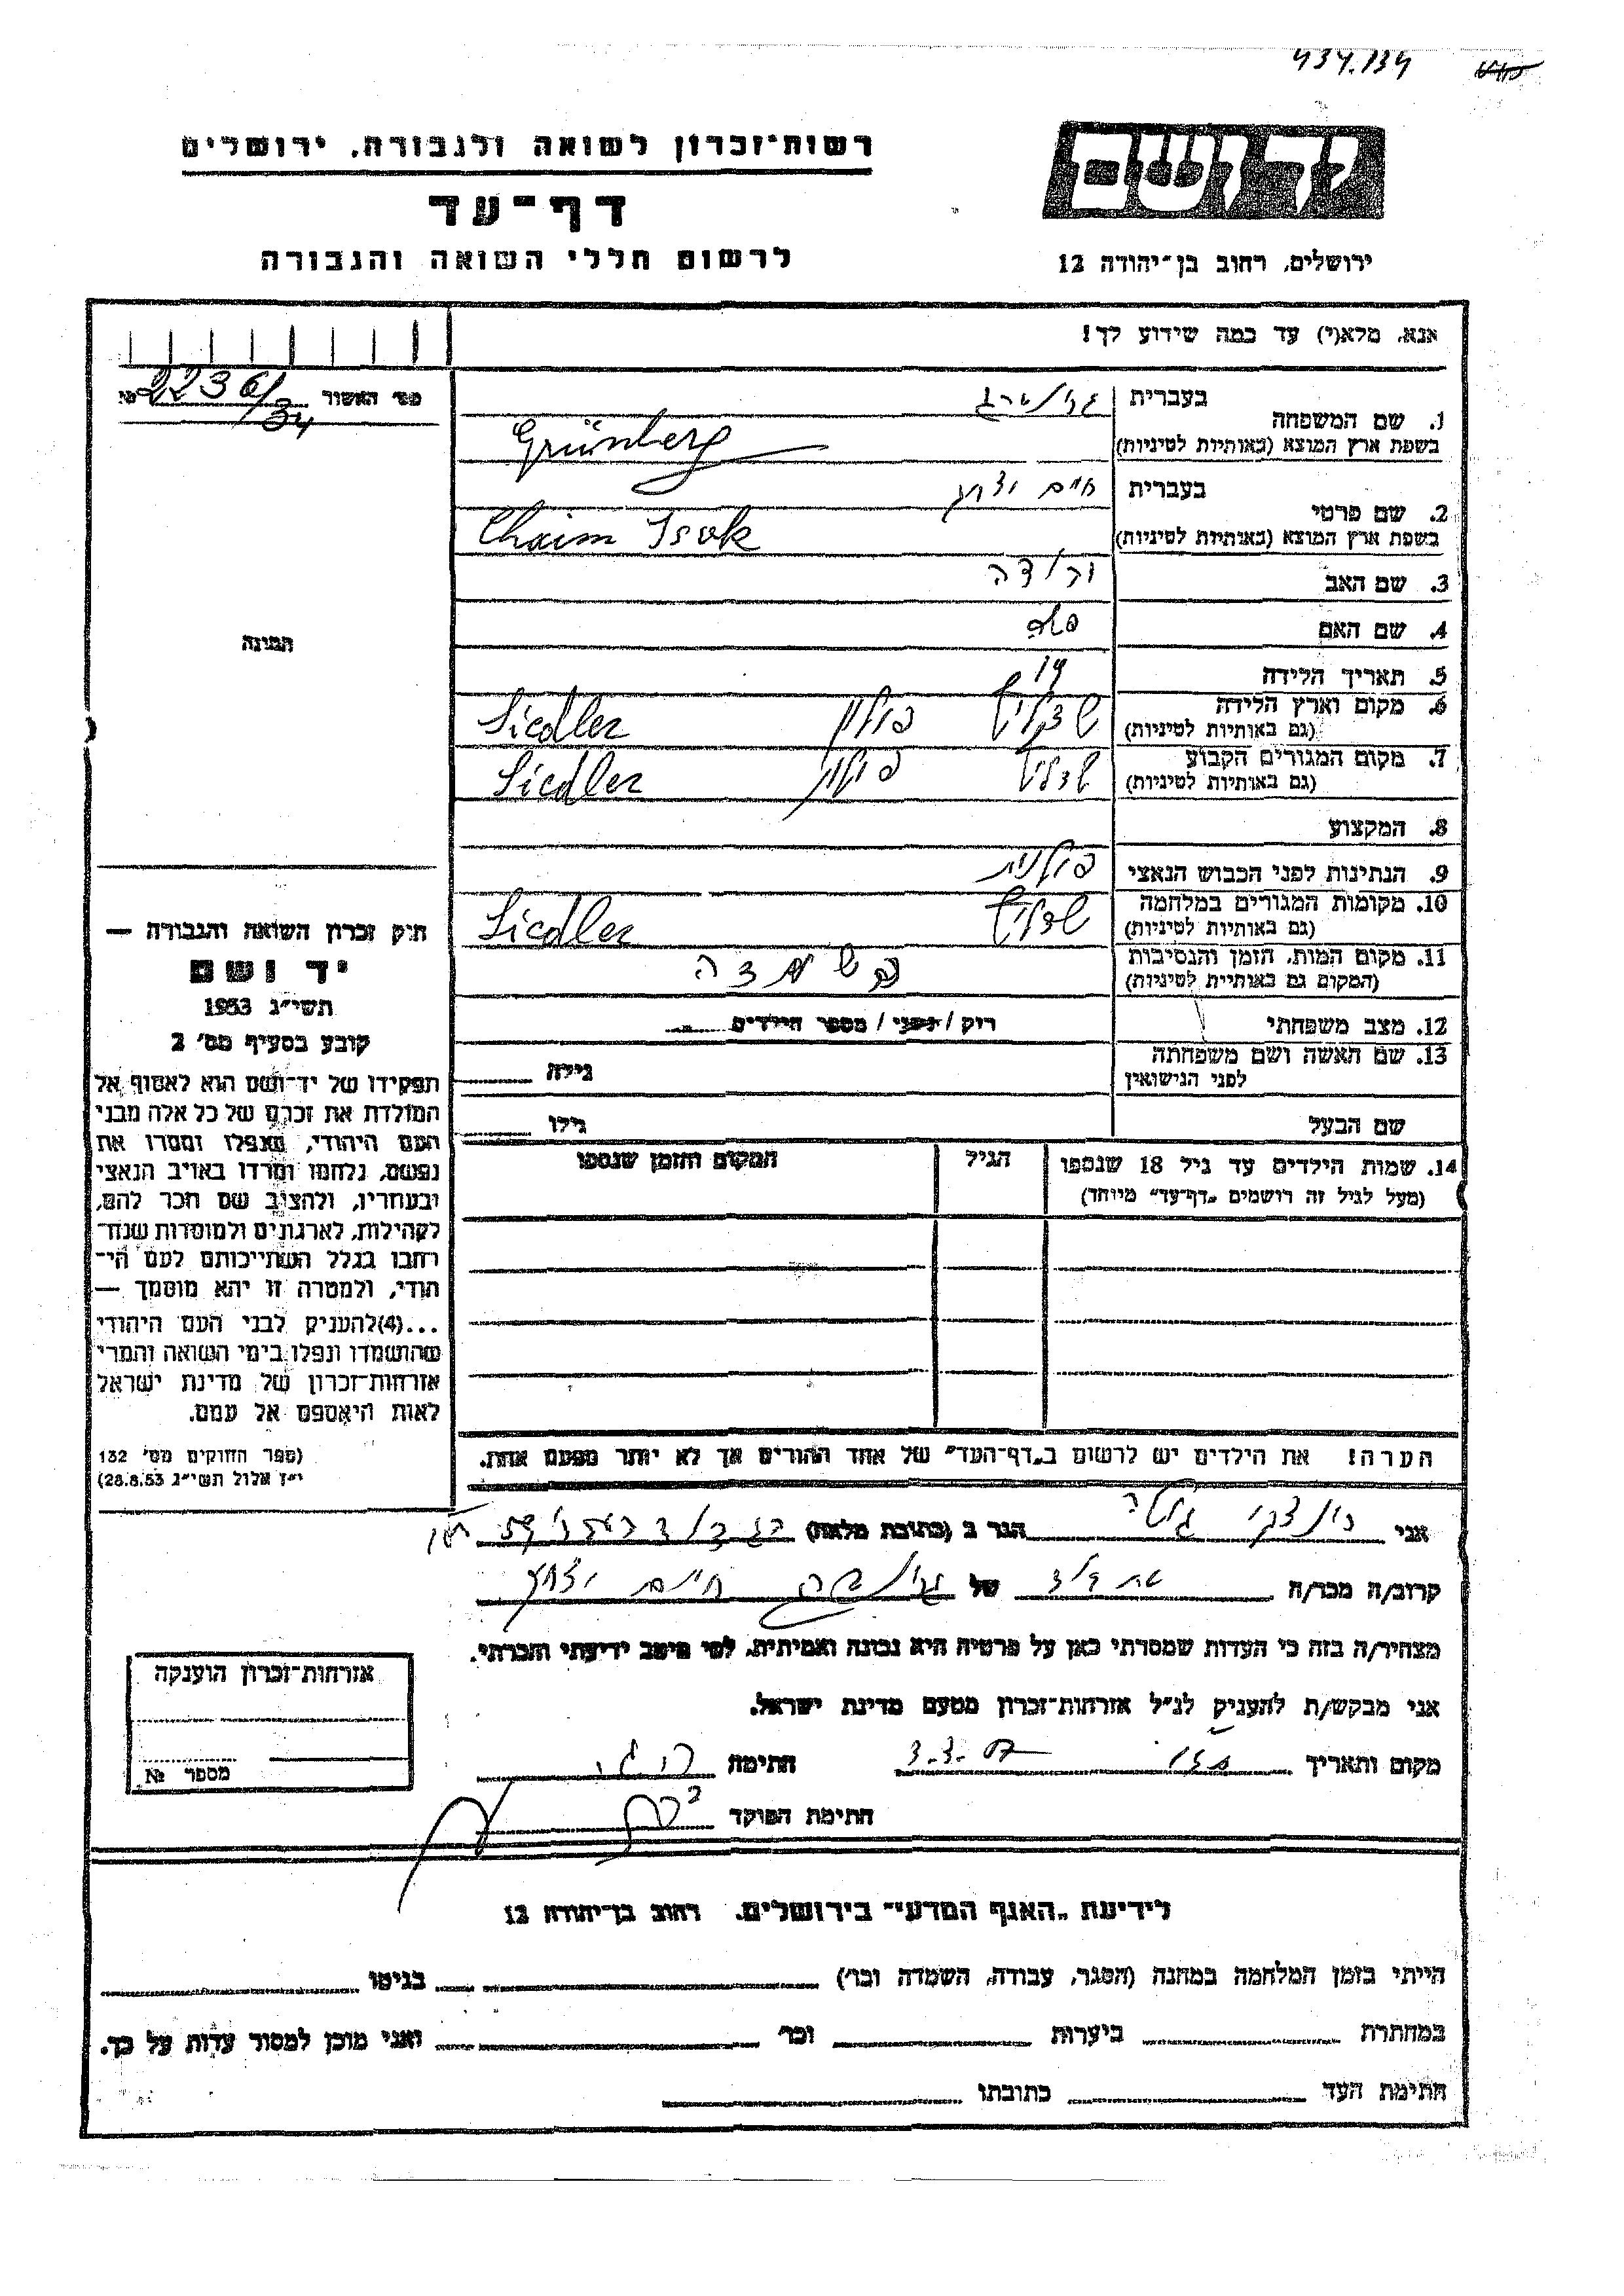 434.134
רשות־זכרון לשואה ולגבורה, ירושלים
דף־עד
לרשום חללי השואה והגבורה
יד ושם
ירושלים, רחוב בן־יהודה 12
אנא, מלא(י) עד כמה שידוע לך!
מס׳ האשור 22361/34 №
1. שם המשפחה
בעברית
בשפת ארץ המוצא (באותיות לטיניות) Grünberg
2. שם פרטי
בעברית חיים יצחק
בשפת ארץ המוצא (באותיות לטיניות) Chaim Isak
3. שם האב יהודה
4. שם האם
5. תאריך הלידה
6. מקום וארץ הלידה פולין Siedlec
(גם באותיות לטיניות)
7. מקום המגורים הקבוע פולין Siedlec
(גם באותיות לטיניות)
8. המקצוע
9. הנתינות לפני הכבוש הנאצי פולנית
10. מקומות המגורים במלחמה Siedlec
(גם באותיות לטיניות)
11. מקום המות, הזמן והנסיבות
(המקום גם באותיות לטיניות)
12. מצב משפחתי רוק / נשוי / מספר הילדים
13. שם האשה ושם משפחתה גילה
לפני הנישואין
שם הבעל גילו
14. שמות הילדים עד גיל 18 שנספו הגיל המקום והזמן שנספו
(מעל לגיל זה רושמים „דף־עד״ מיוחד)
הערה! את הילדים יש לרשום ב„דף־העד״ של אחד ההורים אך לא יותר מפעם אחת.
תמונה
חוק זכרון השואה והגבורה —
יד ושם
תשי״ג 1953
קובע בסעיף מס׳ 2
תפקידו של יד־ושם הוא לאסוף אל
המולדת את זכרם של כל אלה מבני
העם היהודי, שנפלו ומסרו את
נפשם, נלחמו ומרדו באויב הנאצי
ובעוזריו, ולהציב שם וזכר להם,
לקהילות, לארגונים ולמוסדות שנח־
רבו בגלל השתייכותם לעם הי־
הודי, ולמטרה זו יהא מוסמך —
...(4)להעניק לבני העם היהודי
שהושמדו ונפלו בימי השואה והמרי
אזרחות־זכרון של מדינת ישראל
לאות היאספם אל עמם.
(ספר החוקים מס׳ 132
י״ז אלול תשי״ג 28.8.53)
אני הגר ב (כתובת מלאה)
קרוב/ה מכר/ה של חיים יצחק
מצהיר/ה בזה כי העדות שמסרתי כאן על פרטיה היא נכונה ואמיתית, לפי מיטב ידיעתי והכרתי.
אני מבקש/ת להעניק לנ״ל אזרחות־זכרון מטעם מדינת ישראל.
מקום ותאריך חתימה
חתימת הפוקד
אזרחות־זכרון הוענקה
מספר №
לידיעת „האגף המדעי״ בירושלים, רחוב בן־יהודה 12
הייתי בזמן המלחמה במחנה (הסגר, עבודה, השמדה וכו׳) בגיטו
במחתרת ביערות וכו׳ ואני מוכן למסור עדות על כך.
חתימת העד כתובתו